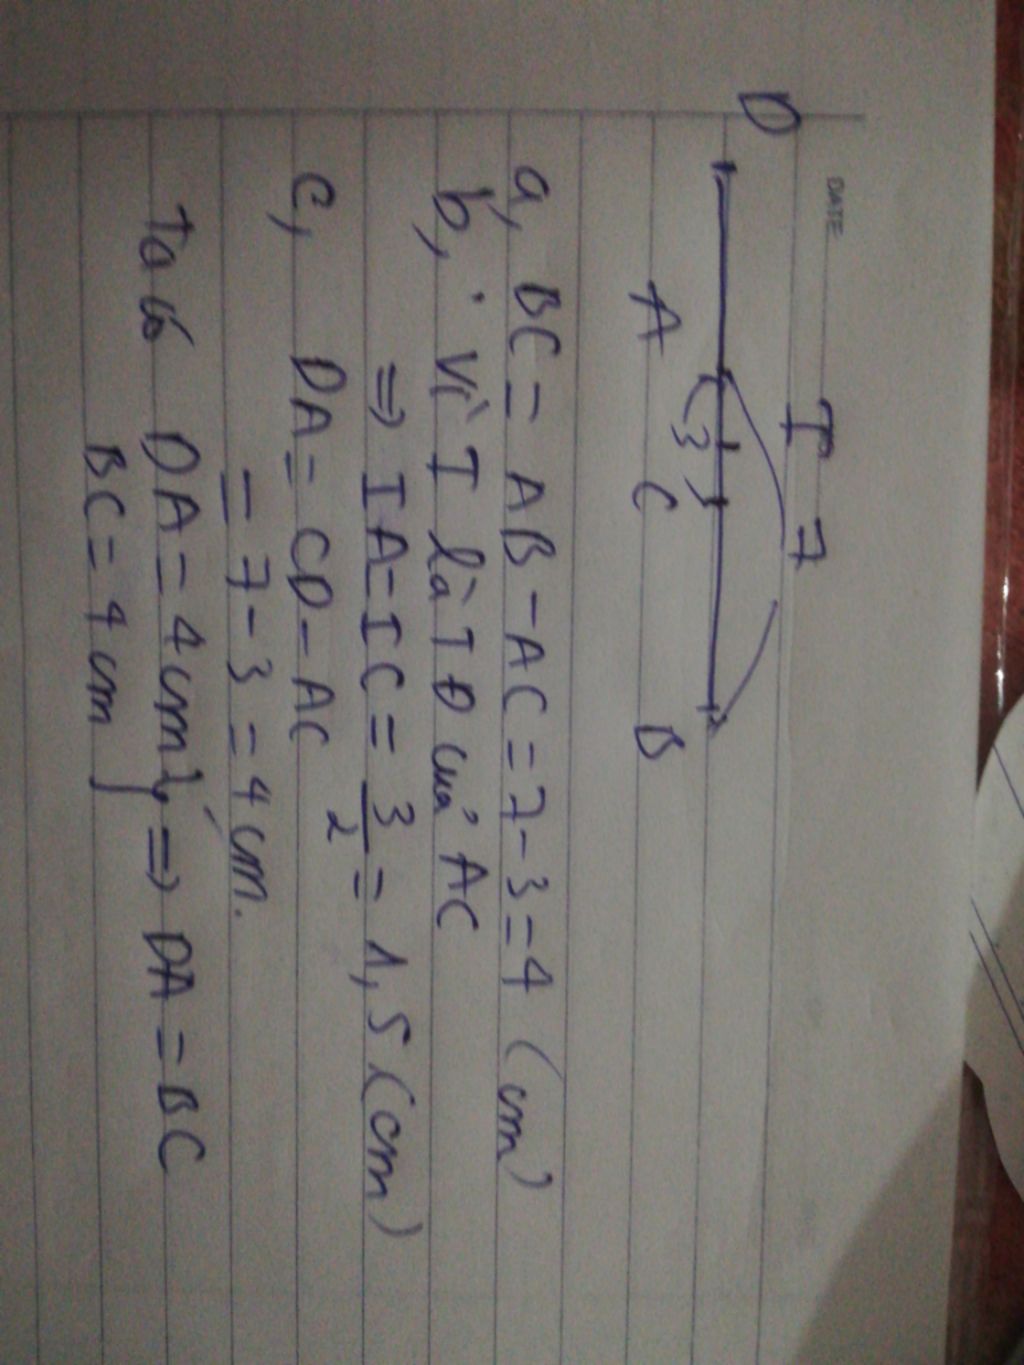 DATE
I 7
D
3
A C B
a, BC = AB - AC = 7 - 3 = 4 (cm)
b, Vì I là TĐ của AC
=> IA = IC = 3/2 = 1,5 (cm)
c, DA = CD - AC
= 7 - 3 = 4 cm.
Ta có DA = 4 cm } => DA = BC
BC = 4 cm